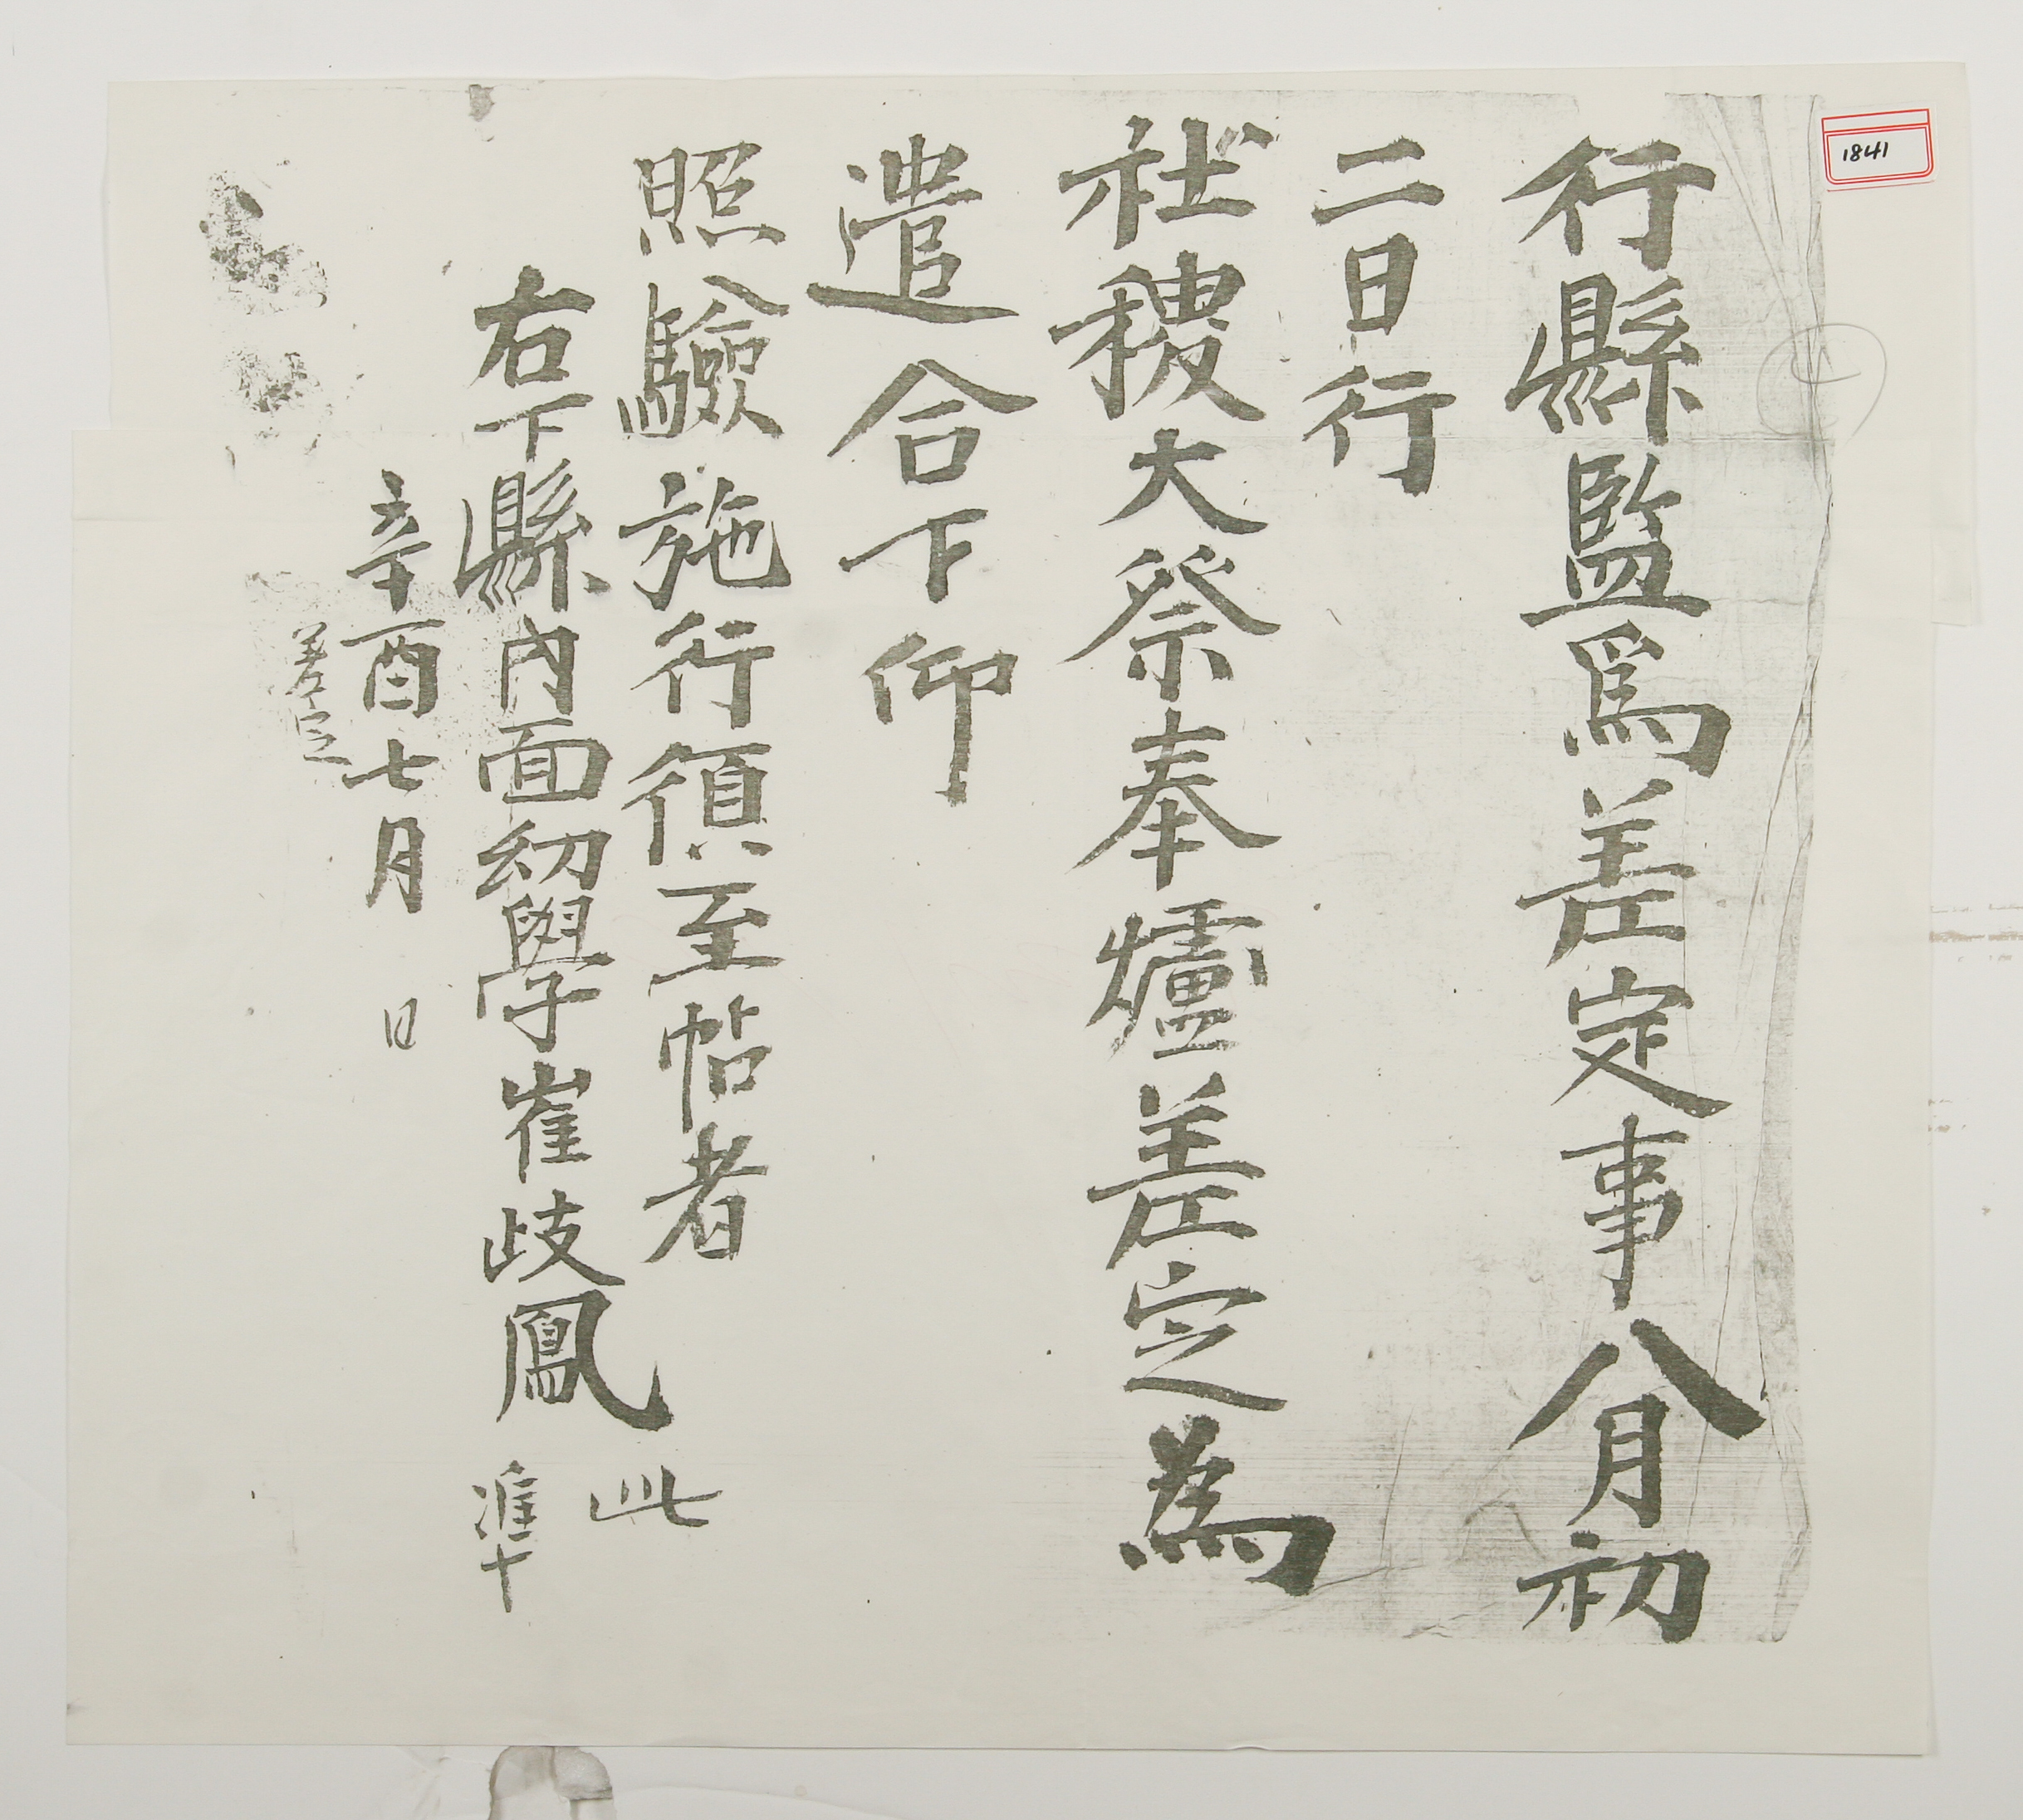 1841
行縣監爲差定事八月初
二日行
社稷大祭奉爐差定為
遣合下仰
照驗施行須至帖者
右下縣內面幼學崔岐鳳 此準
辛酉七月 日
差定